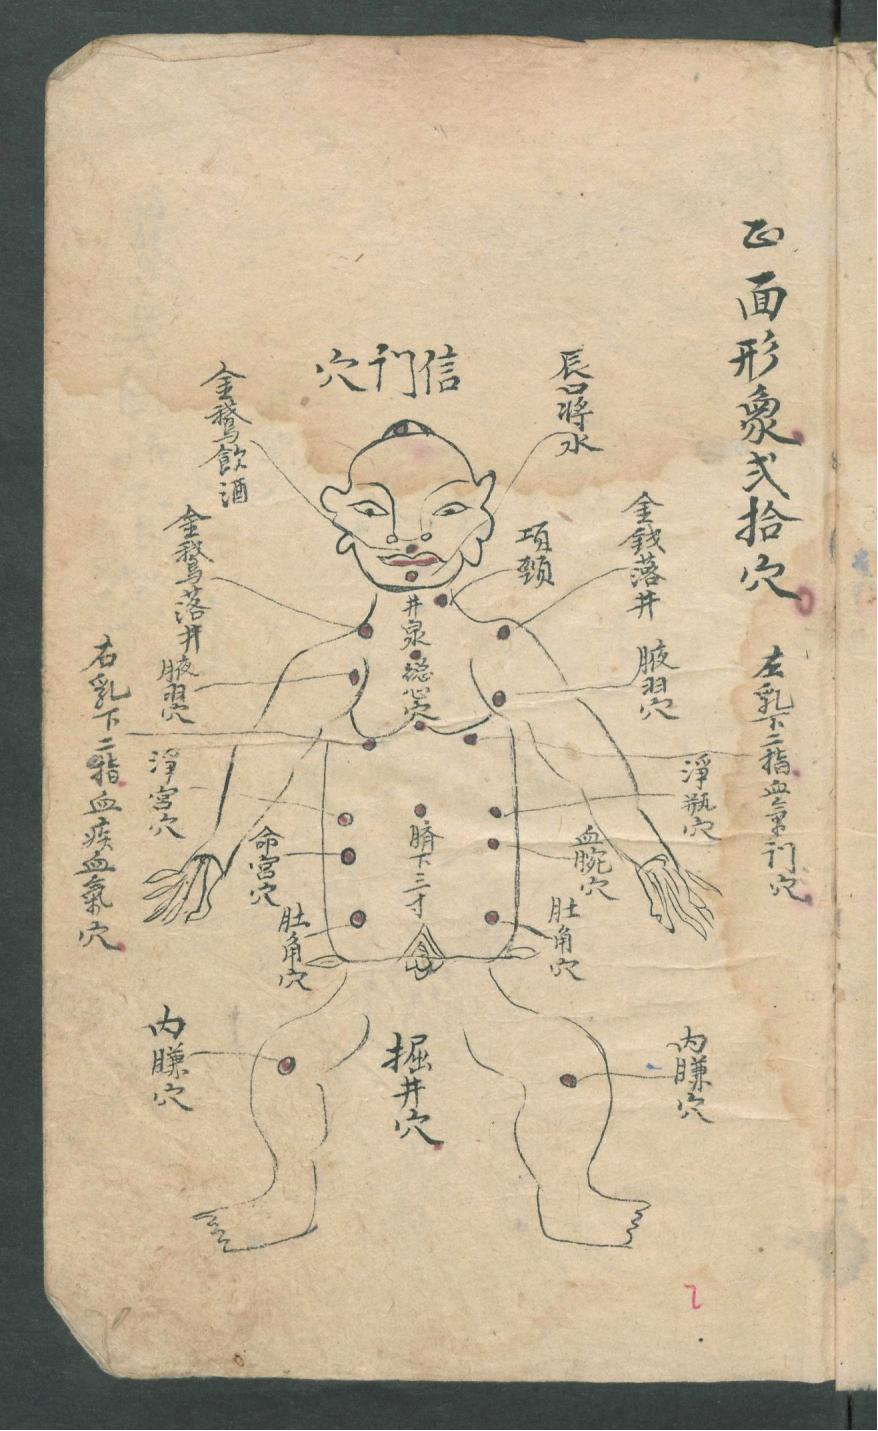 正面形象弍拾穴
左乳下二指血氣门穴
淨瓶穴
金錢落井
腋羽穴
内臁穴
辰口將水
項頸
血腕穴
肚角穴
信门穴
井泉
總心穴
臍下三寸
掘井穴
金鵞飲酒
金鵞落井
腋羽穴
淨宮穴
命宮穴
肚角穴
右乳下二指血疾血氣穴
内臁穴